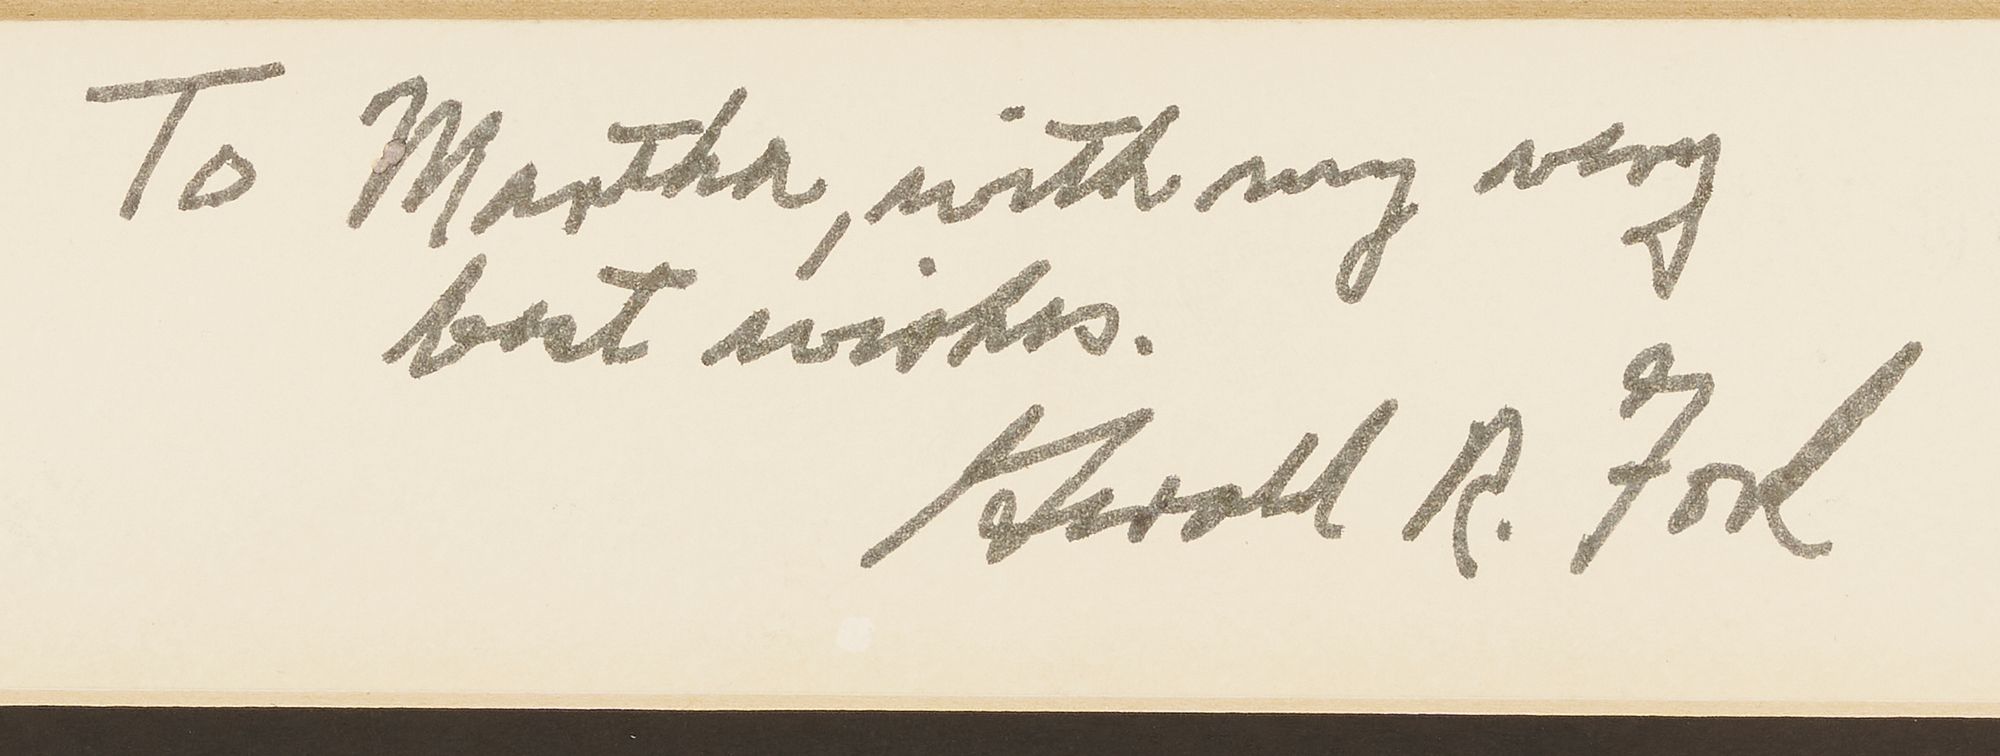 To Martha, with my very
best wishes.
Gerald R. Ford